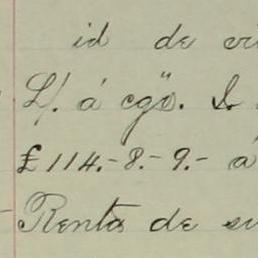 id de
L/. á cgo. L
£114.-8.-9.- á
Renta de su